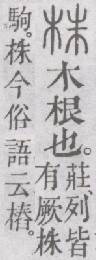 株木根也。
莊、列皆
有厥株
駒。株今俗語云樁。